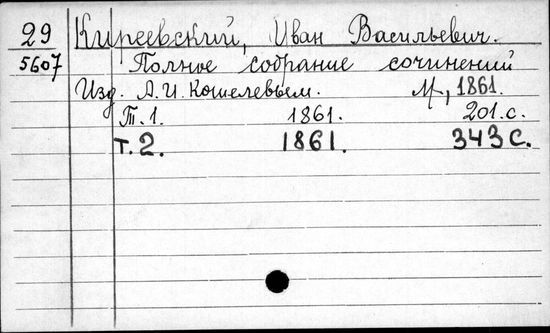 29 Киреевский, Иван Васильевич.
5607 Полное собрание сочинений
Изд. А.И. Кошелевым. М., 1861.
Т.1. 1861. 201.с.
т.2. 1861. 343 с.